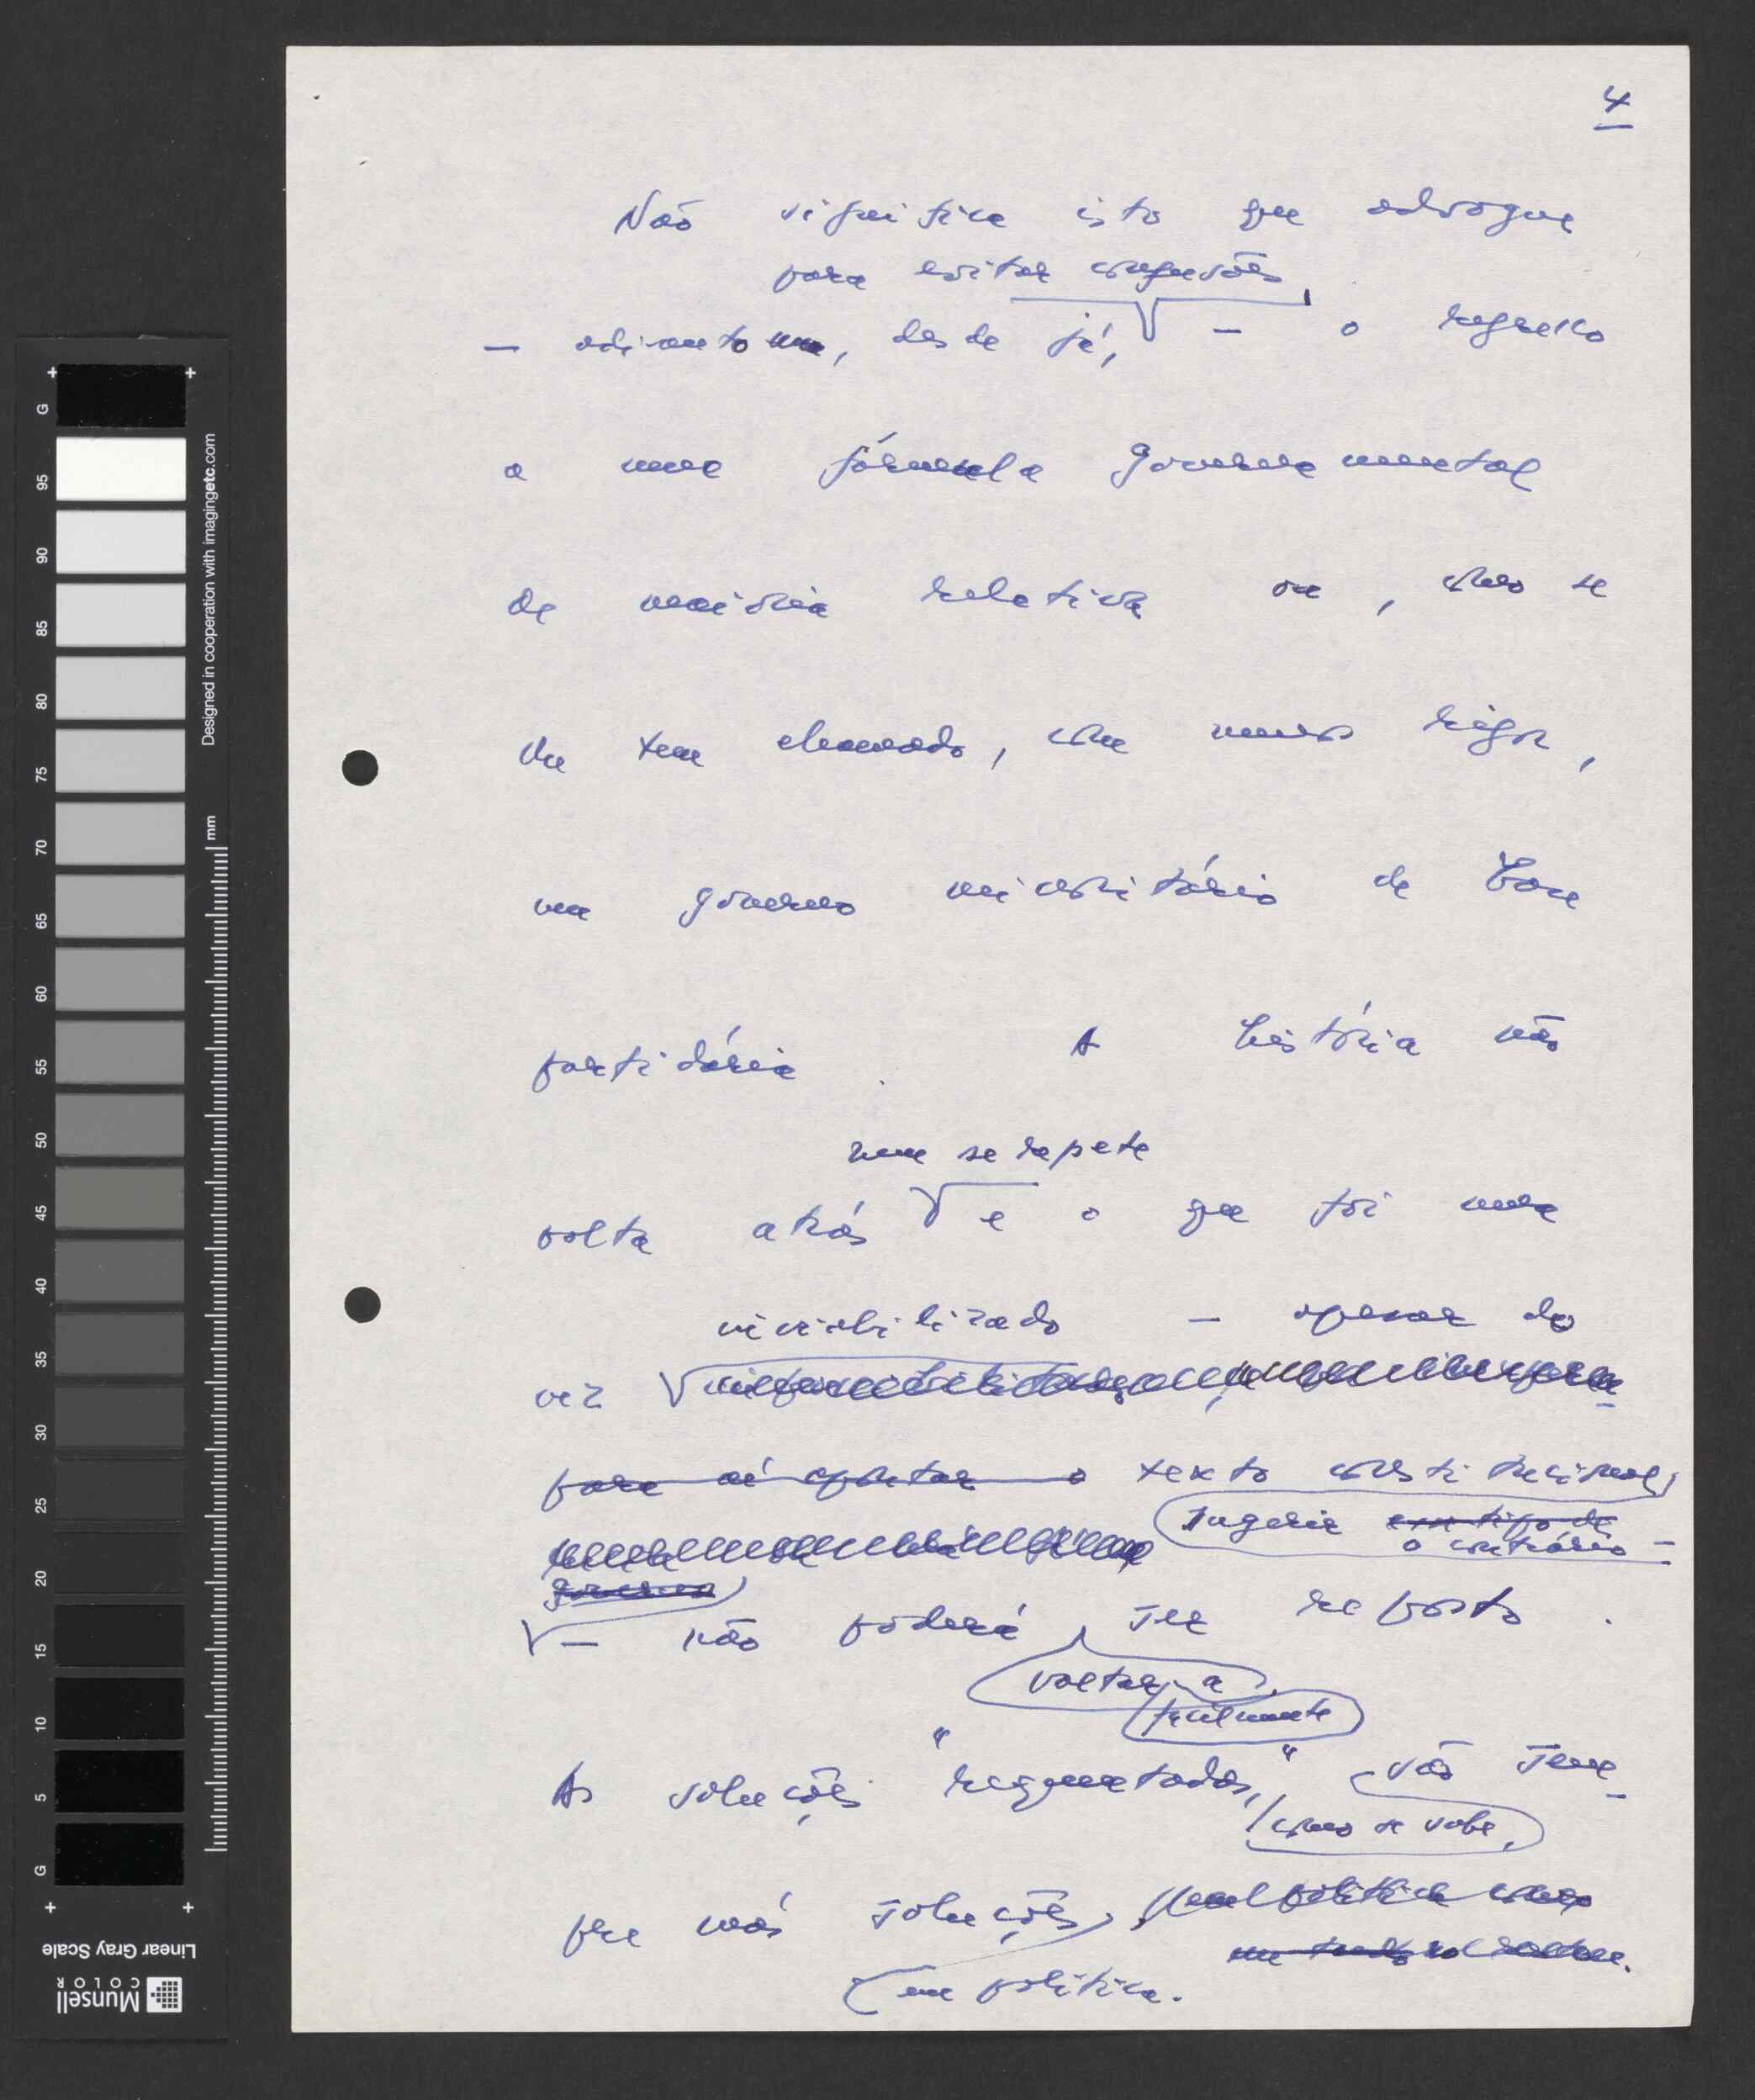 4
Não significa isto que advogue
para evitar confusões,
— adianto-me, desde já, — o regresso
a uma fórmula governamental
de maioria relativa ou, como se
lhe tem chamado, com menos rigor,
um governo minoritário de base
partidária. A história não
nem se repete
volta atrás e o que foi uma
inviabilizado — apesar do
vez
para aí apontar o texto constitucional
sugerir um tipo de
o contrário —
governo
— não poderá ser reposto.
voltar a
facilmente
As soluções "requentadas," são sem-
como se sabe,
pre más soluções, 
em política.
G 95 90 85 80 75 70 65 60 55 50 45 40 35 30 25 20 15 10 5 G
Designed in cooperation with imagingetc.com
mm
Linear Gray Scale
Munsell
COLOR